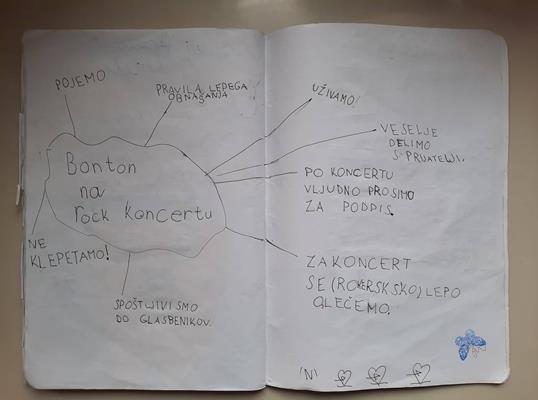 POJEMO
PRAVILA LEPEGA
OBNAŠANJA
UŽIVAMO!
VESELJE
DELIMO
S PRIJATELJI.
Bonton
na
rock koncertu
PO KONCERTU
VLJUDNO PROSIMO
ZA PODPIS.
NE
KLEPETAMO!
ZA KONCERT
SE (ROKERSKSKO) LEPO
OLEČEMO.
SPOŠTLJIVI SMO
DO GLASBENIKOV.